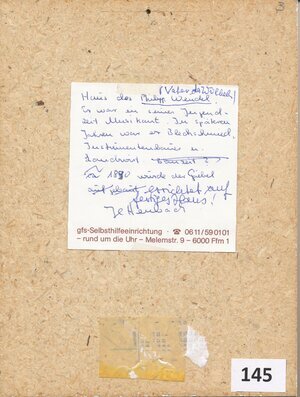 3
(Vater des Wilhelm)
Haus des Philipp Wendel.
Er war in seiner Jugend-
zeit Musikant. In späteren
Jahren war er Blechschmied,
Instrumentenbauer u.
Landwirt
1890 wurde der Giebel
errichtet auf
Haus!
gfs-Selbsthilfeeinrichtung · ☎ 0611/590101
– rund um die Uhr – Melemstr. 9 – 6000 Ffm 1
145